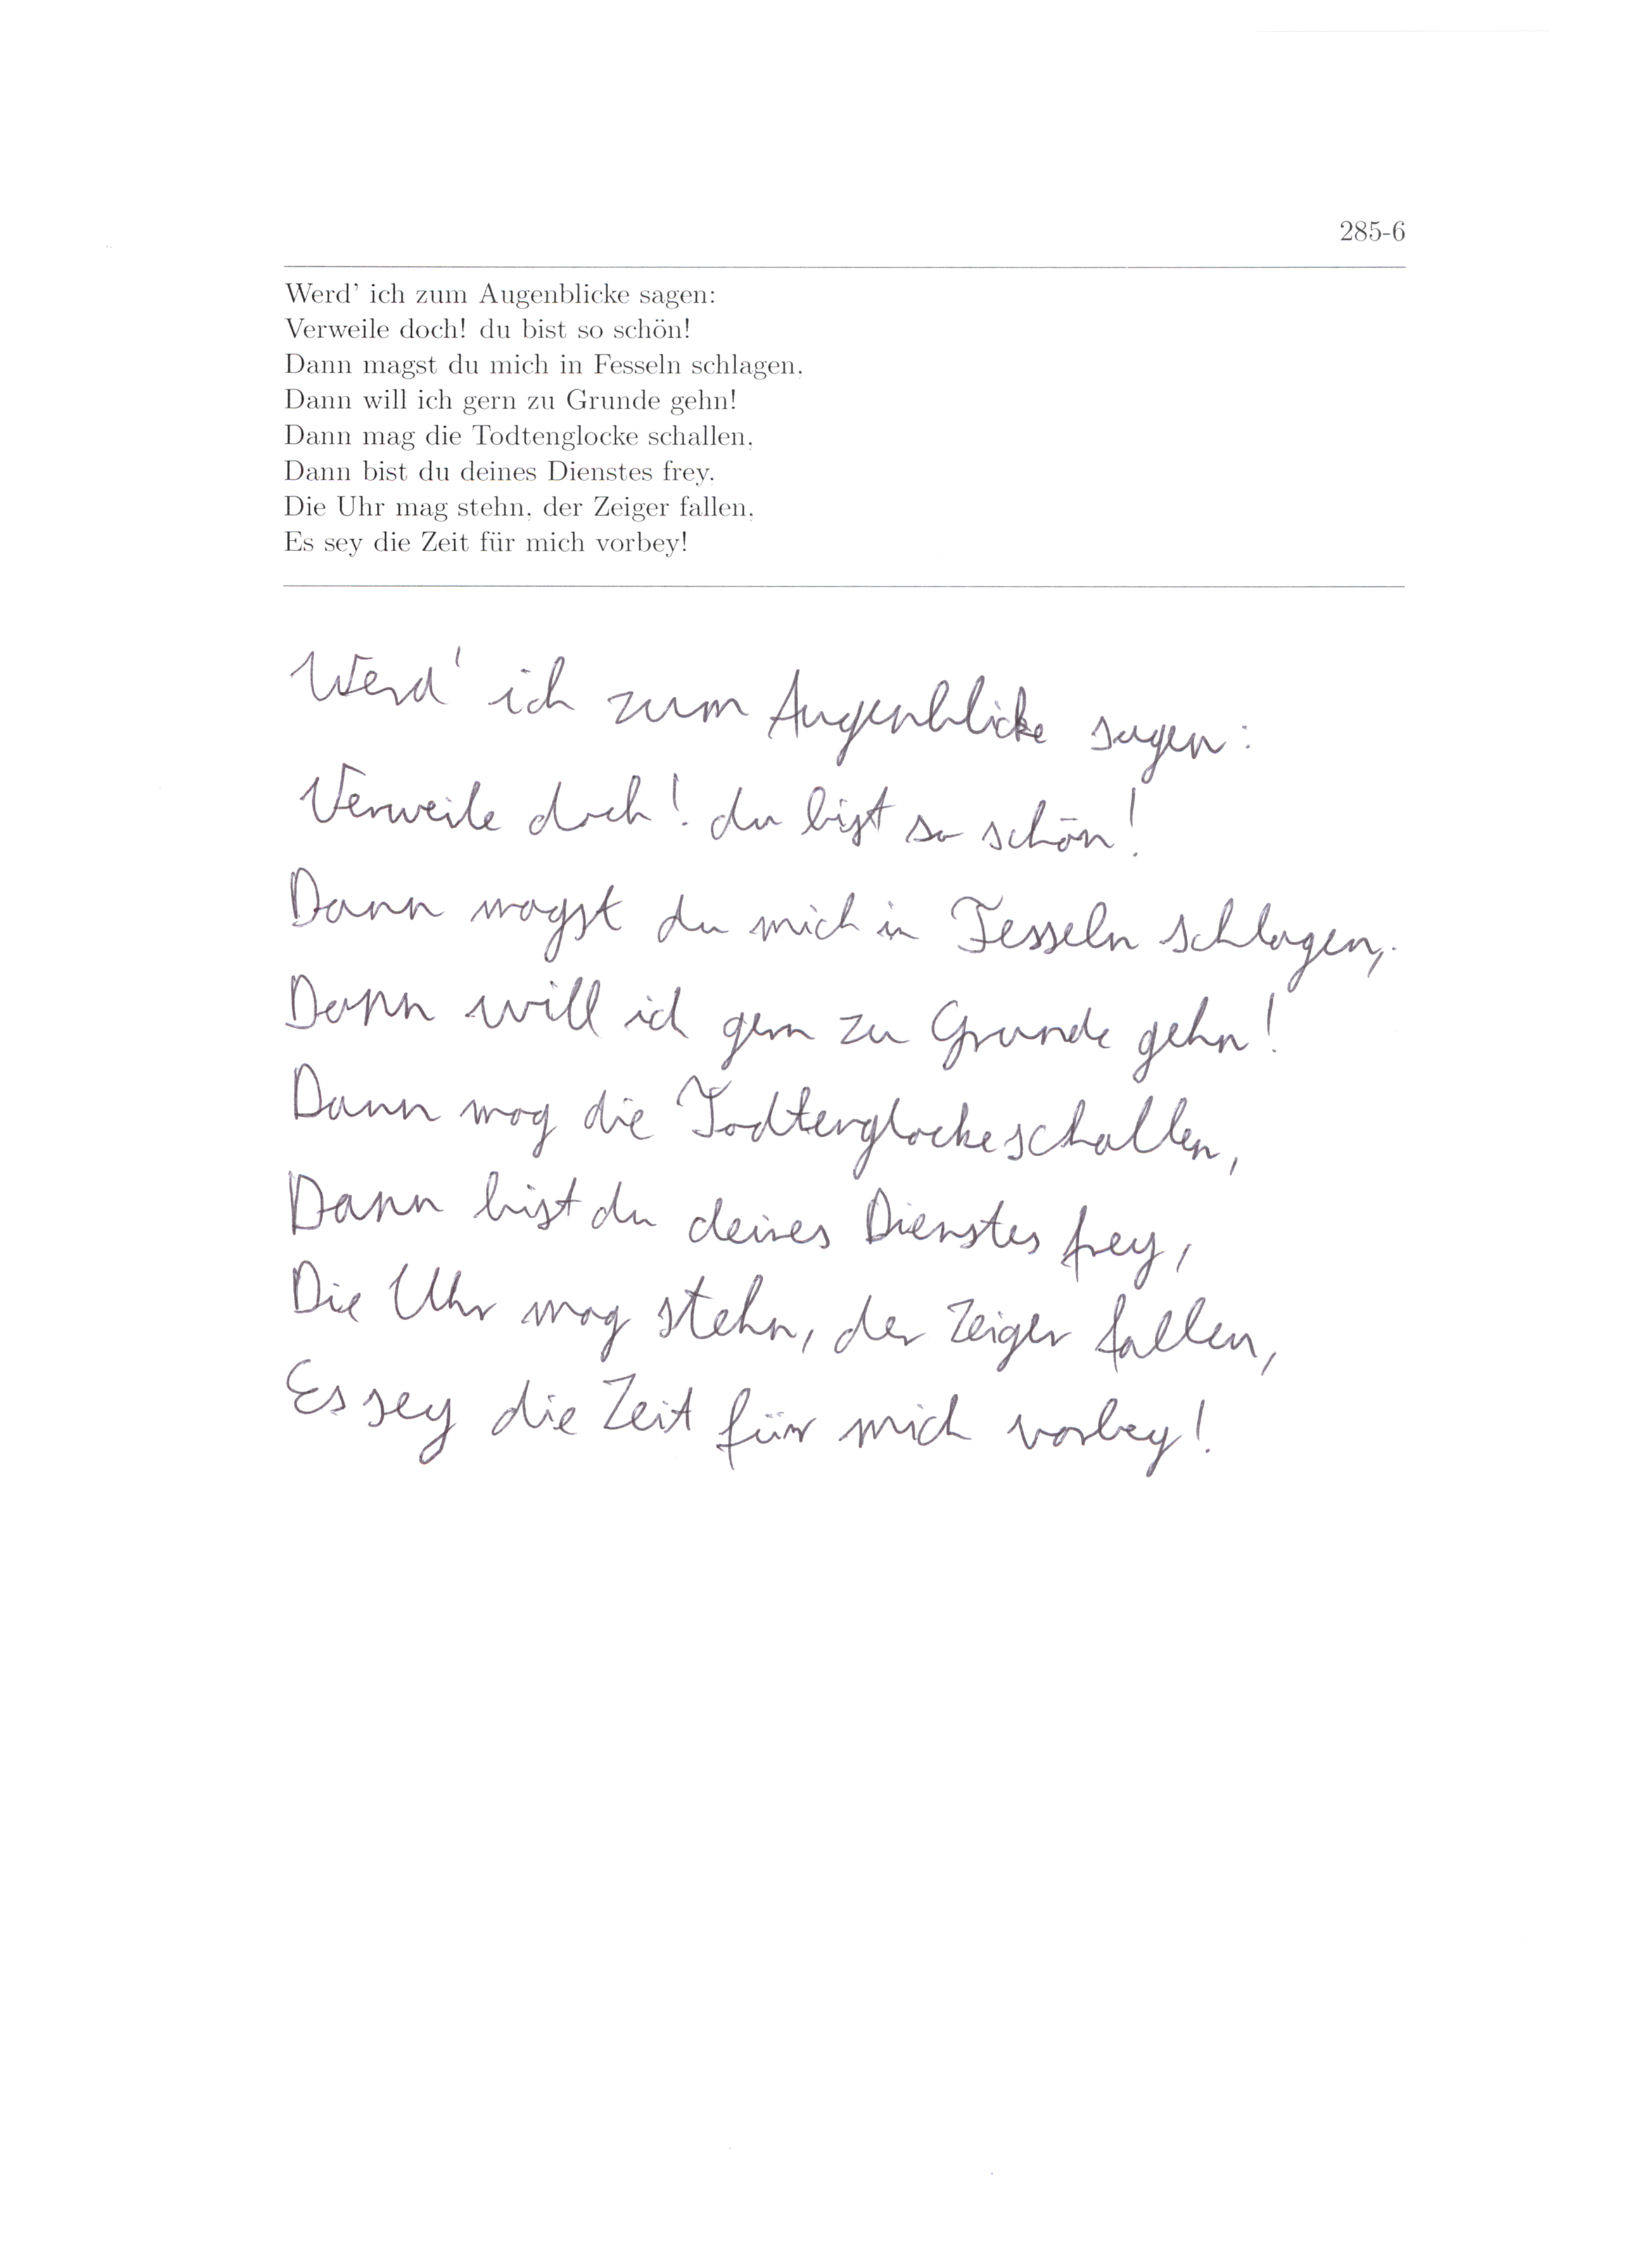 285-6
Werd' ich zum Augenblicke sagen:
Verweile doch! du bist so schön!
Dann magst du mich in Fesseln schlagen,
Dann will ich gern zu Grunde gehn!
Dann mag die Todtenglocke schallen,
Dann bist du deines Dienstes frey,
Die Uhr mag stehn, der Zeiger fallen,
Es sey die Zeit für mich vorbey!
Werd' ich zum Augenblicke sagen:
Verweile doch! du bist so schön!
Dann magst du mich in Fesseln schlagen,.
Dann will ich gern zu Grunde gehn!
Dann mag die Todtenglocke schallen,
Dann bist du deines Dienstes frey,
Die Uhr mag stehn, der Zeiger fallen,
Es sey die Zeit für mich vorbey!